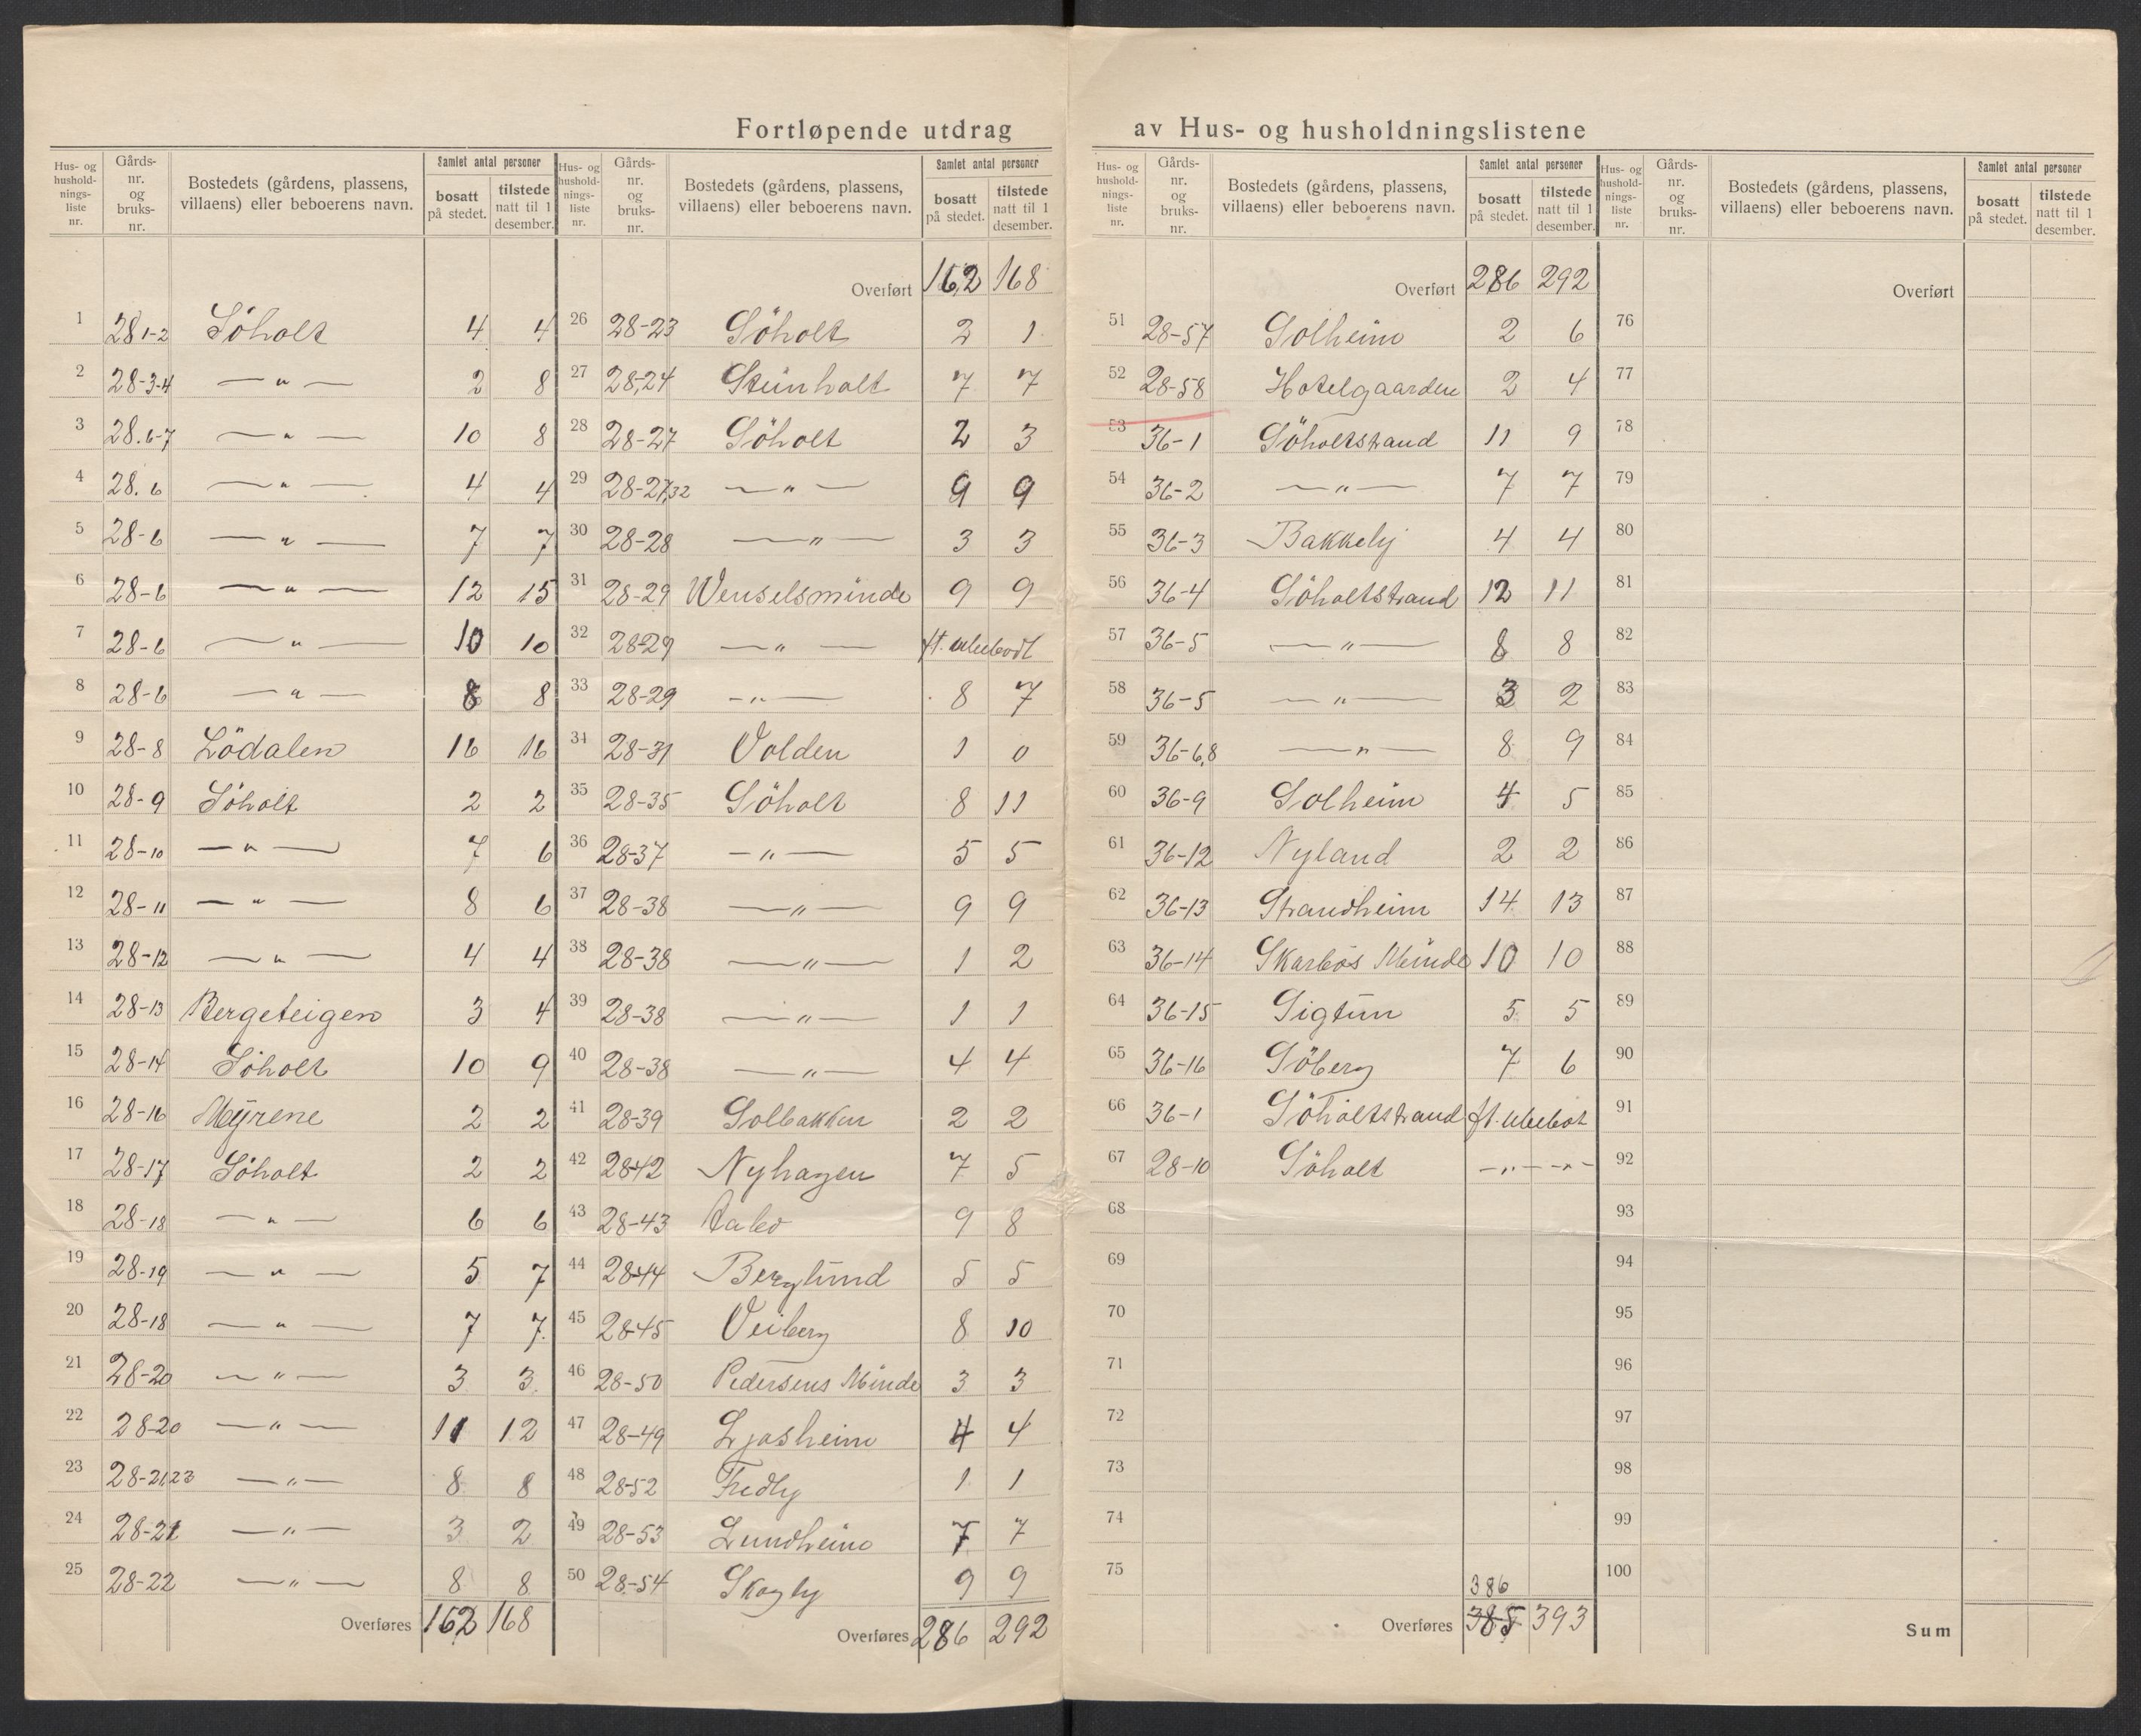 Fortløpende utdrag av Hus- og husholdningslistene
Hus- og husholdnings-liste nr. | Gårds-nr. og bruks-nr. | Bostedets (gårdens, plassens, villaens) eller beboerens navn. | Samlet antal personer | bosatt på stedet. | tilstede natt til 1 desember.
1 28 1-2 Söholt 4 4
2 28-3-4 —〃— 2 8
3 28.6-7 —〃— 10 8
4 28.6 —〃— 4 4
5 28-6 —〃— 7 7
6 28-6 —〃— 12 15
7 28-6 —〃— 10 10
8 28-6 —〃— 8 8
9 28-8 Lödalen 16 16
10 28-9 Söholt 2 2
11 28-10 —〃— 7 6
12 28-11 —〃— 8 6
13 28-12 —〃— 4 4
14 28-13 Bergeteigen 3 4
15 28-14 Söholt 10 9
16 28-16 Myrene 2 2
17 28-17 Söholt 2 2
18 28-18 —〃— 6 6
19 28-19 —〃— 5 7
20 28-18 —〃— 7 7
21 28-20 —〃— 3 3
22 28-20 —〃— 11 12
23 28-21,23 —〃— 8 8
24 28-21 —〃— 3 2
25 28-22 —〃— 8 8
Overføres 162 168
Hus- og husholdnings-liste nr. | Gårds-nr. og bruks-nr. | Bostedets (gårdens, plassens, villaens) eller beboerens navn. | Samlet antal personer | bosatt på stedet. | tilstede natt til 1 desember.
Overført 162 168
26 28-23 Söholt 2 1
27 28,24 Steinholt 7 7
28 28-27 Söholt 2 3
29 28-27,32 —〃— 9 9
30 28-28 —〃— 3 3
31 28-29 Wenselsminde 9 9
32 28-29 —〃— ft. ubebodt
33 28-29 —〃— 8 7
34 28-31 Volden 1 0
35 28-35 Söholt 8 11
36 28-37 —〃— 5 5
37 28-38 —〃— 9 9
38 28-38 —〃— 1 2
39 28-38 —〃— 1 1
40 28-38 —〃— 4 4
41 28-39 Solbakken 2 2
42 28-42 Nyhagen 7 5
43 28-43 9 8
44 28-44 Berglund 5 5
45 28-45 Veiberg 8 10
46 28-50 Pedersens Minde 3 3
47 28-49 Ljosheim 4 4
48 28-52 Fredly 1 1
49 28-53 Lundheim 7 7
50 28-54 Skogly 9 9
Overføres 286 292
Hus- og husholdnings-liste nr. | Gårds-nr. og bruks-nr. | Bostedets (gårdens, plassens, villaens) eller beboerens navn. | Samlet antal personer | bosatt på stedet. | tilstede natt til 1 desember.
Overført 286 292
51 28-57 Solheim 2 6
52 28-58 Hotelgaarden 2 4
53 36-1 Söholtstrand 11 9
54 36-2 —〃— 7 7
55 36-3 Bakkely 4 4
56 36-4 Söholtstrand 12 11
57 36-5 —〃— 8 8
58 36-5 —〃— 3 2
59 36-6,8 —〃— 8 9
60 36-9 Solheim 4 5
61 36-12 Nyland 2 2
62 36-13 Strandheim 14 13
63 36-14 Skarbös Minde 10 10
64 36-15 Sigtun 5 5
65 36-16 Söberg 7 6
66 36-1 Söholtstrand ft. ubebot
67 28-10 Söholt —〃— —〃—
68
69
70
71
72
73
74
75
386
Overføres 385 393
Hus- og husholdnings-liste nr. | Gårds-nr. og bruks-nr. | Bostedets (gårdens, plassens, villaens) eller beboerens navn. | Samlet antal personer | bosatt på stedet. | tilstede natt til 1 desember.
Overført
76
77
78
79
80
81
82
83
84
85
86
87
88
89
90
91
92
93
94
95
96
97
98
99
100
Sum